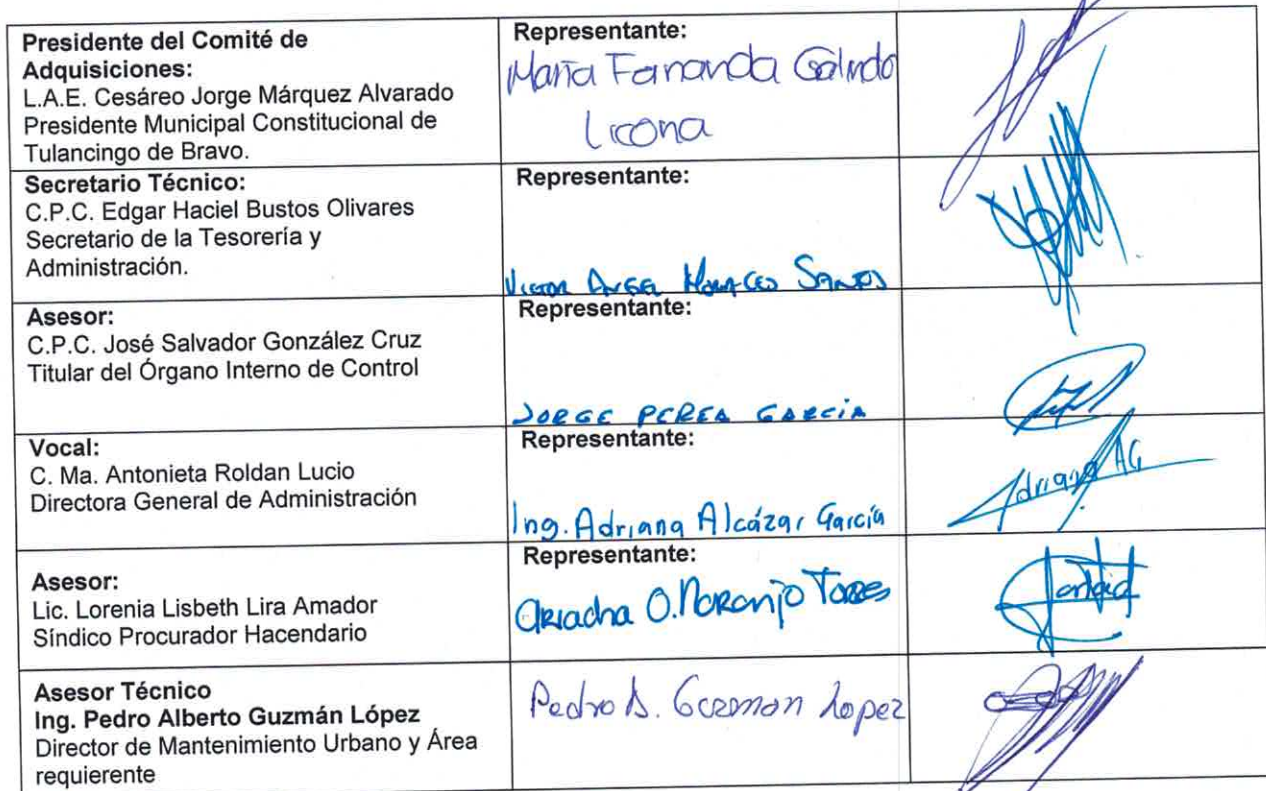 Presidente del Comité de
Adquisiciones:
L.A.E. Cesáreo Jorge Márquez Alvarado
Presidente Municipal Constitucional de
Tulancingo de Bravo.
Representante:
María Fernanda Galindo
Licona
Secretario Técnico:
C.P.C. Edgar Haciel Bustos Olivares
Secretario de la Tesorería y
Administración.
Representante:
Victor Angel Santos
Asesor:
C.P.C. José Salvador González Cruz
Titular del Órgano Interno de Control
Representante:
JORGE PEREA GARCÍA
Vocal:
C. Ma. Antonieta Roldan Lucio
Directora General de Administración
Representante:
Ing. Adriana Alcázar García
Adriana AG
Asesor:
Lic. Lorenia Lisbeth Lira Amador
Síndico Procurador Hacendario
Representante:
Ariadna O. Naranjo Torres
Asesor Técnico
Ing. Pedro Alberto Guzmán López
Director de Mantenimiento Urbano y Área
requierente
Pedro A. Guzman Lopez